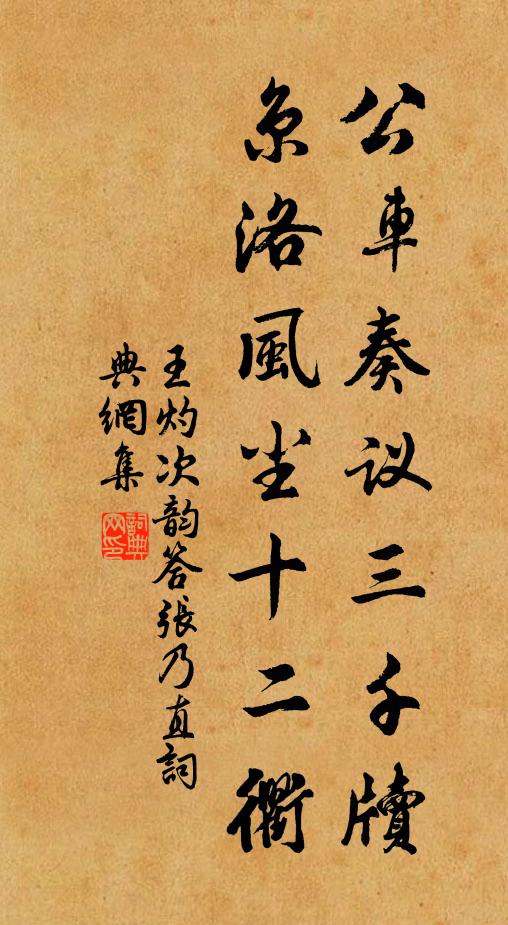 公車奏议三千牍
京洛風尘十二衢
王灼次韵答張乃直詞
典網集
詞典網印